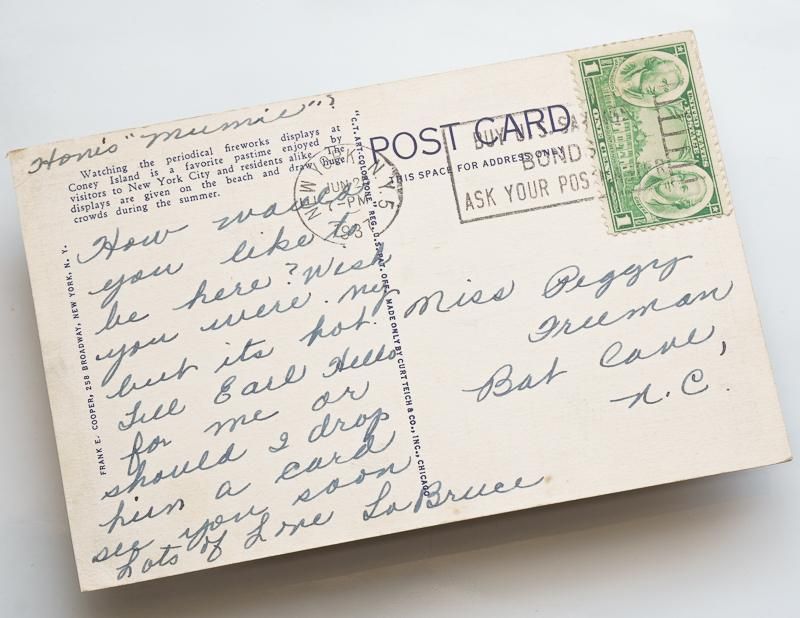 Hows "Mumie"?
Watching the periodical fireworks displays at
Coney Island is a favorite pastime enjoyed by
visitors to New York City and residents alike. The
displays are given on the beach and draw huge
crowds during the summer.
How would
you like to
be here? Wish
you were. my
but its hot.
Tell Earl Hello
for me or
should I drop
him a card
see you soon
Lots of Love LaBruce
FRANK E. COOPER, 258 BROADWAY, NEW YORK, N. Y.
"C.T. ART-COLORTONE" REG. U.S. PAT. OFF. MADE ONLY BY CURT TEICH & CO., INC., CHICAGO
POST CARD
THIS SPACE FOR ADDRESS ONLY
NEW YORK, N.Y. 5
JUN 2
7-PM
193
BUY U.S. SA
BONDS
ASK YOUR POS
1
1
Miss Peggy
Freeman
Bat Cave,
N.C.